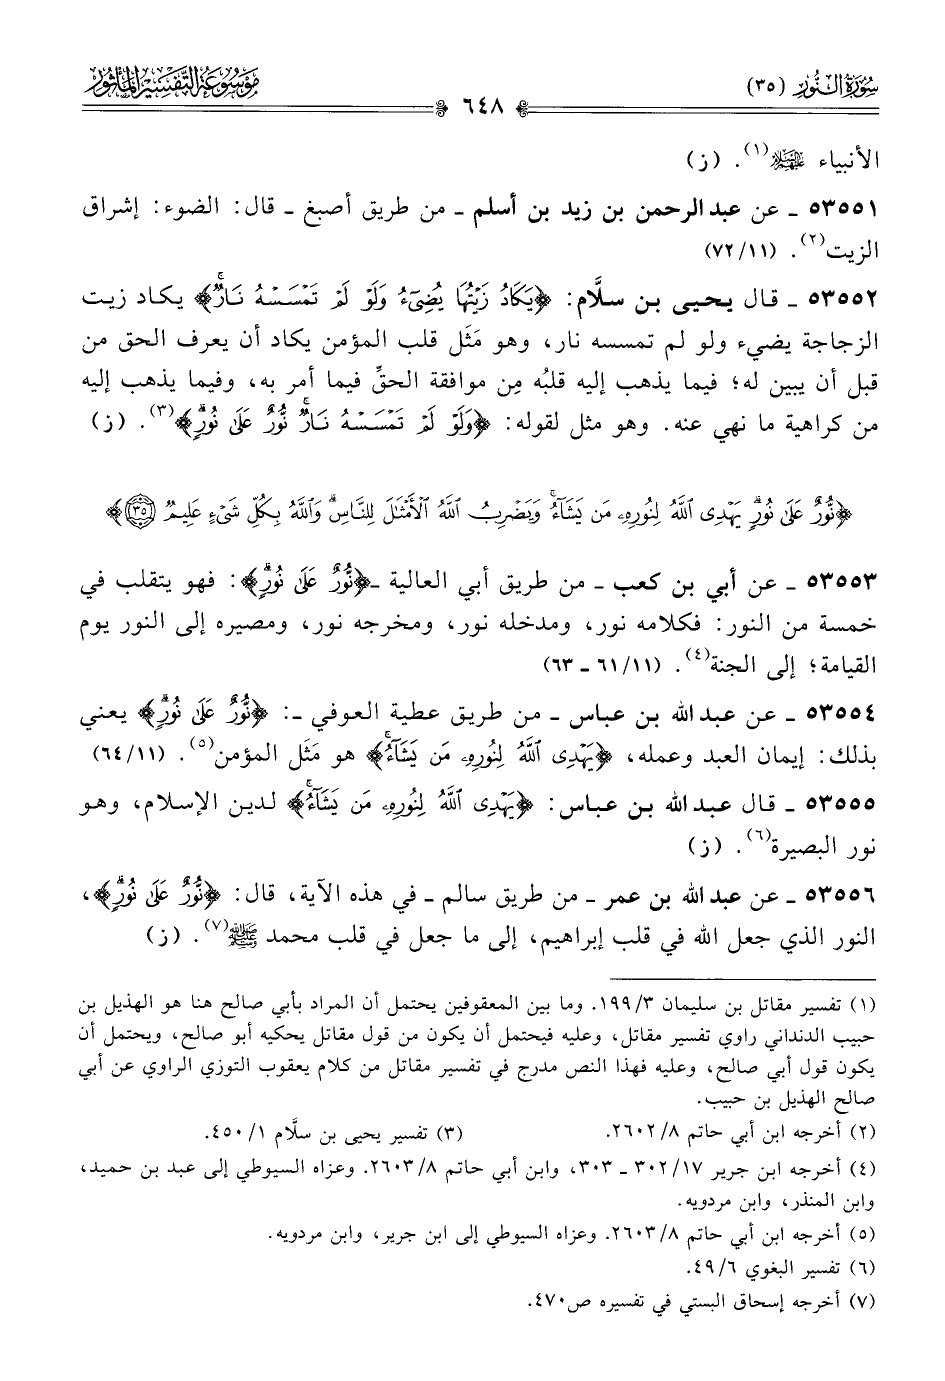 سُورَةُ النُّورِ (٣٥)
مَوْسُوعَةُ التَّفْسِيرِ المَأْثُورِ
٦٤٨
الأنبياء عليهم السلام(١). (ز)
٥٣٥٥١ ـ عن عبد الرحمن بن زيد بن أسلم ـ من طريق أصبغ ـ قال: الضوء: إشراق
الزيت(٢). (١١/ ٧٢)
٥٣٥٥٢ ـ قال يحيى بن سلَّام: ﴿يَكَادُ زَيْتُهَا يُضِيٓءُ وَلَوْ لَمْ تَمْسَسْهُ نَارٌۚ﴾ يكاد زيت
الزجاجة يضيء ولو لم تمسسه نار، وهو مَثَل قلب المؤمن يكاد أن يعرف الحق من
قبل أن يبين له؛ فيما يذهب إليه قلبُه مِن موافقة الحقِّ فيما أمر به، وفيما يذهب إليه
من كراهية ما نهي عنه. وهو مثل لقوله: ﴿وَلَوْ لَمْ تَمْسَسْهُ نَارٌۚ نُّورٌ عَلَىٰ نُورٍۗ﴾(٣). (ز)
﴿نُّورٌ عَلَىٰ نُورٍۗ يَهْدِى ٱللَّهُ لِنُورِهِۦ مَن يَشَآءُۚ وَيَضْرِبُ ٱللَّهُ ٱلْأَمْثَٰلَ لِلنَّاسِۗ وَٱللَّهُ بِكُلِّ شَىْءٍ عَلِيمٌ ٣٥﴾
٥٣٥٥٣ ـ عن أبي بن كعب ـ من طريق أبي العالية ـ ﴿نُّورٌ عَلَىٰ نُورٍۗ﴾: فهو يتقلب في
خمسة من النور: فكلامه نور، ومدخله نور، ومخرجه نور، ومصيره إلى النور يوم
القيامة؛ إلى الجنة(٤). (١١/ ٦١ ـ ٦٣)
٥٣٥٥٤ ـ عن عبد الله بن عباس ـ من طريق عطية العوفي ـ: ﴿نُّورٌ عَلَىٰ نُورٍۗ﴾ يعني
بذلك: إيمان العبد وعمله، ﴿يَهْدِى ٱللَّهُ لِنُورِهِۦ مَن يَشَآءُۚ﴾ هو مَثَل المؤمن(٥). (١١/ ٦٤)
٥٣٥٥٥ ـ قال عبد الله بن عباس: ﴿يَهْدِى ٱللَّهُ لِنُورِهِۦ مَن يَشَآءُۚ﴾ لدين الإسلام، وهو
نور البصيرة(٦). (ز)
٥٣٥٥٦ ـ عن عبد الله بن عمر ـ من طريق سالم ـ في هذه الآية، قال: ﴿نُّورٌ عَلَىٰ نُورٍۗ﴾،
النور الذي جعل الله في قلب إبراهيم، إلى ما جعل في قلب محمد ﷺ(٧). (ز)
(١) تفسير مقاتل بن سليمان ٣/ ١٩٩. وما بين المعقوفين يحتمل أن المراد بأبي صالح هنا هو الهذيل بن
حبيب الدنداني راوي تفسير مقاتل، وعليه فيحتمل أن يكون من قول مقاتل يحكيه أبو صالح، ويحتمل أن
يكون قول أبي صالح، وعليه فهذا النص مدرج في تفسير مقاتل من كلام يعقوب التوزي الراوي عن أبي
صالح الهذيل بن حبيب.
(٢) أخرجه ابن أبي حاتم ٨/ ٢٦٠٢. (٣) تفسير يحيى بن سلَّام ١/ ٤٥٠.
(٤) أخرجه ابن جرير ١٧/ ٣٠٢ ـ ٣٠٣، وابن أبي حاتم ٨/ ٢٦٠٣. وعزاه السيوطي إلى عبد بن حميد،
وابن المنذر، وابن مردويه.
(٥) أخرجه ابن أبي حاتم ٨/ ٢٦٠٣. وعزاه السيوطي إلى ابن جرير، وابن مردويه.
(٦) تفسير البغوي ٦/ ٤٩.
(٧) أخرجه إسحاق البستي في تفسيره ص٤٧٠.